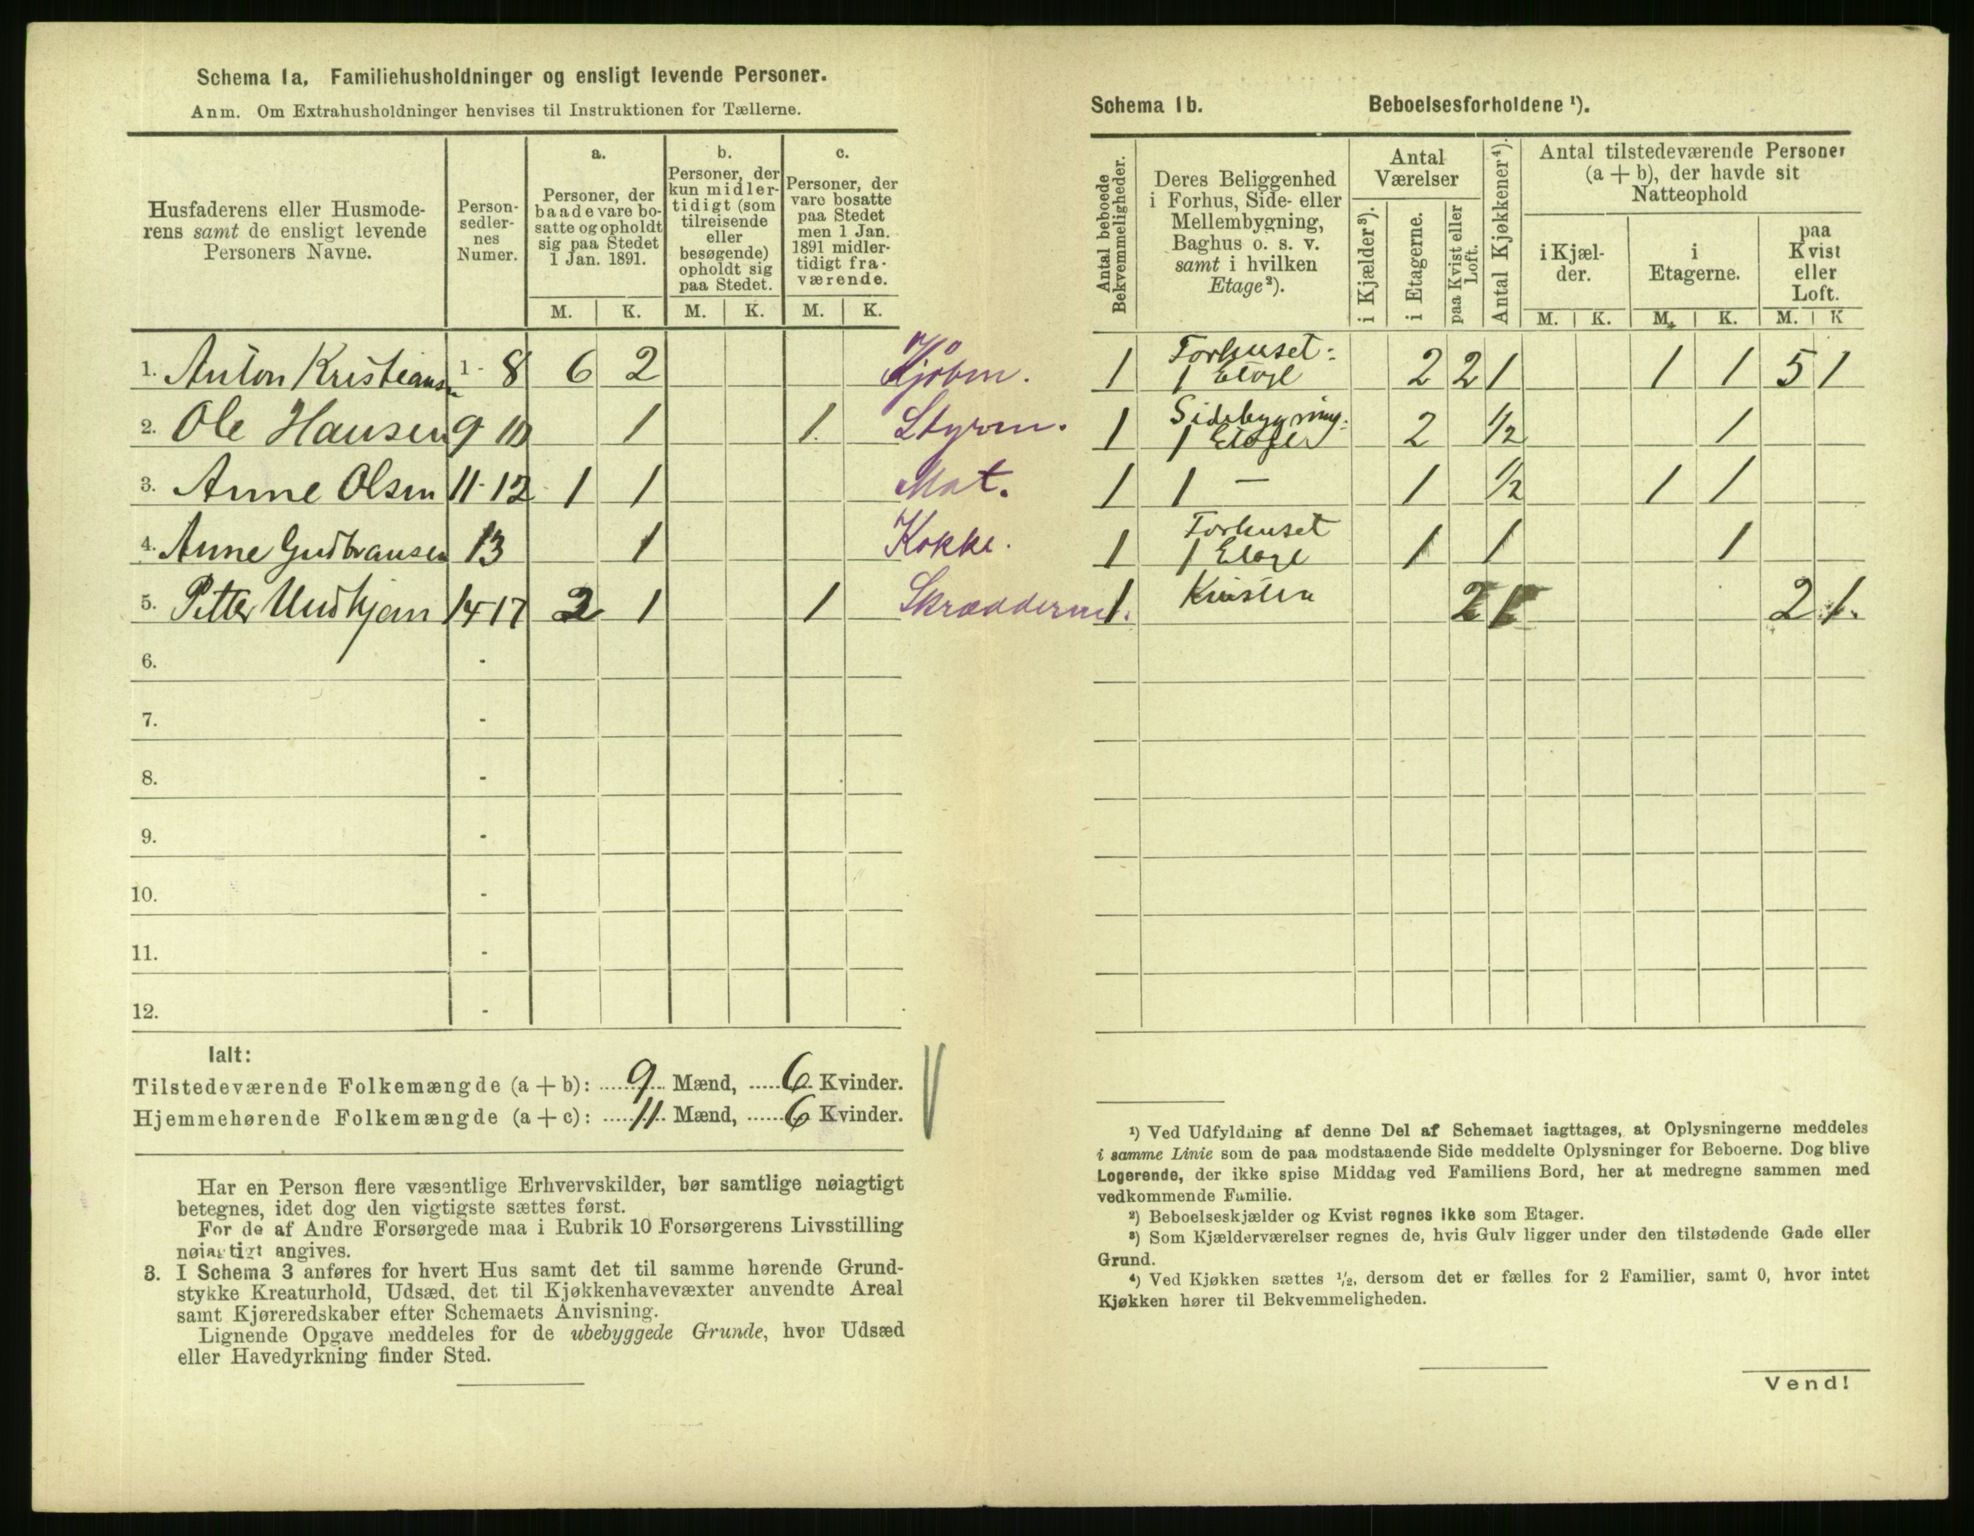 Schema 1a, Familiehusholdninger og ensligt levende Personer.
Anm. Om Extrahusholdninger henvises til Instruktionen for Tællerne.
Husfaderens eller Husmode-
rens samt de ensligt levende
Personers Navne.
Person-
sedler-
nes
Numer.
a.
Personer, der
baade vare bo-
satte og opholdt
sig paa Stedet
1 Jan. 1891.
b.
Personer, der
kun midler-
tidigt (som
tilreisende
eller
besøgende)
opholdt sig
paa Stedet.
c.
Personer, der
vare bosatte
paa Stedet
men 1 Jan.
1891 midler-
tidigt fra-
værende.
M. K. M. K. M. K.
1. Anton Kristiansen 1 - 8 6 2 Kjøbm.
2. Ole Hansen 9 10 1 1 Styrm.
3. Anne Olsen 11-12 1 1 Mat.
4. Anne Gudbransen 13 1 Kokke.
5. Petter 14 17 2 1 1
6. -
7. -
8. -
9. -
10. -
11. -
12. -
Ialt:
Tilstedeværende Folkemængde (a + b): 9 Mænd, 6 Kvinder.
Hjemmehørende Folkemængde (a + c): 11 Mænd, 6 Kvinder.
Har en Person flere væsentlige Erhvervskilder, bør samtlige nøiagtigt
betegnes, idet dog den vigtigste sættes først.
For de af Andre Forsørgede maa i Rubrik 10 Forsørgerens Livsstilling
nøiagtigt angives.
3. I Schema 3 anføres for hvert Hus samt det til samme hørende Grund-
stykke Kreaturhold, Udsæd, det til Kjøkkenhavevæxter anvendte Areal
samt Kjøreredskaber efter Schemaets Anvisning.
Lignende Opgave meddeles for de ubebyggede Grunde, hvor Udsæd
eller Havedyrkning finder Sted.
Schema 1b. Beboelsesforholdene ¹).
Antal beboede
Bekvemmeligheder.
Deres Beliggenhed
i Forhus, Side- eller
Mellembygning,
Baghus o. s. v.
samt i hvilken
Etage²).
Antal
Værelser
i Kjælder³).
i Etagerne.
paa Kvist eller
Loft.
Antal Kjøkkener⁴).
Antal tilstedeværende Personer
(a + b), der havde sit
Natteophold
i Kjæl-
der.
i
Etagerne.
paa
Kvist
eller
Loft.
M. K. M. K. M. K
1 Forhuset: 1 Etage 2 2 1 1 1 5 1
1 Sidebygning: 1 Etage 2 ½ 1
1 1 — 1 ½ 1 1
1 Forhuset 1 Etage 1 1 1
1 Kvisten 2 1 2 1.
¹) Ved Udfyldning af denne Del af Schemaet iagttages, at Oplysningerne meddeles
i samme Linie som de paa modstaaende Side meddelte Oplysninger for Beboerne. Dog blive
Logerende, der ikke spise Middag ved Familiens Bord, her at medregne sammen med
vedkommende Familie.
²) Beboelseskjælder og Kvist regnes ikke som Etager.
³) Som Kjælderværelser regnes de, hvis Gulv ligger under den tilstødende Gade eller
Grund.
⁴) Ved Kjøkken sættes ½, dersom det er fælles for 2 Familier, samt 0, hvor intet
Kjøkken hører til Bekvemmeligheden.
Vend!